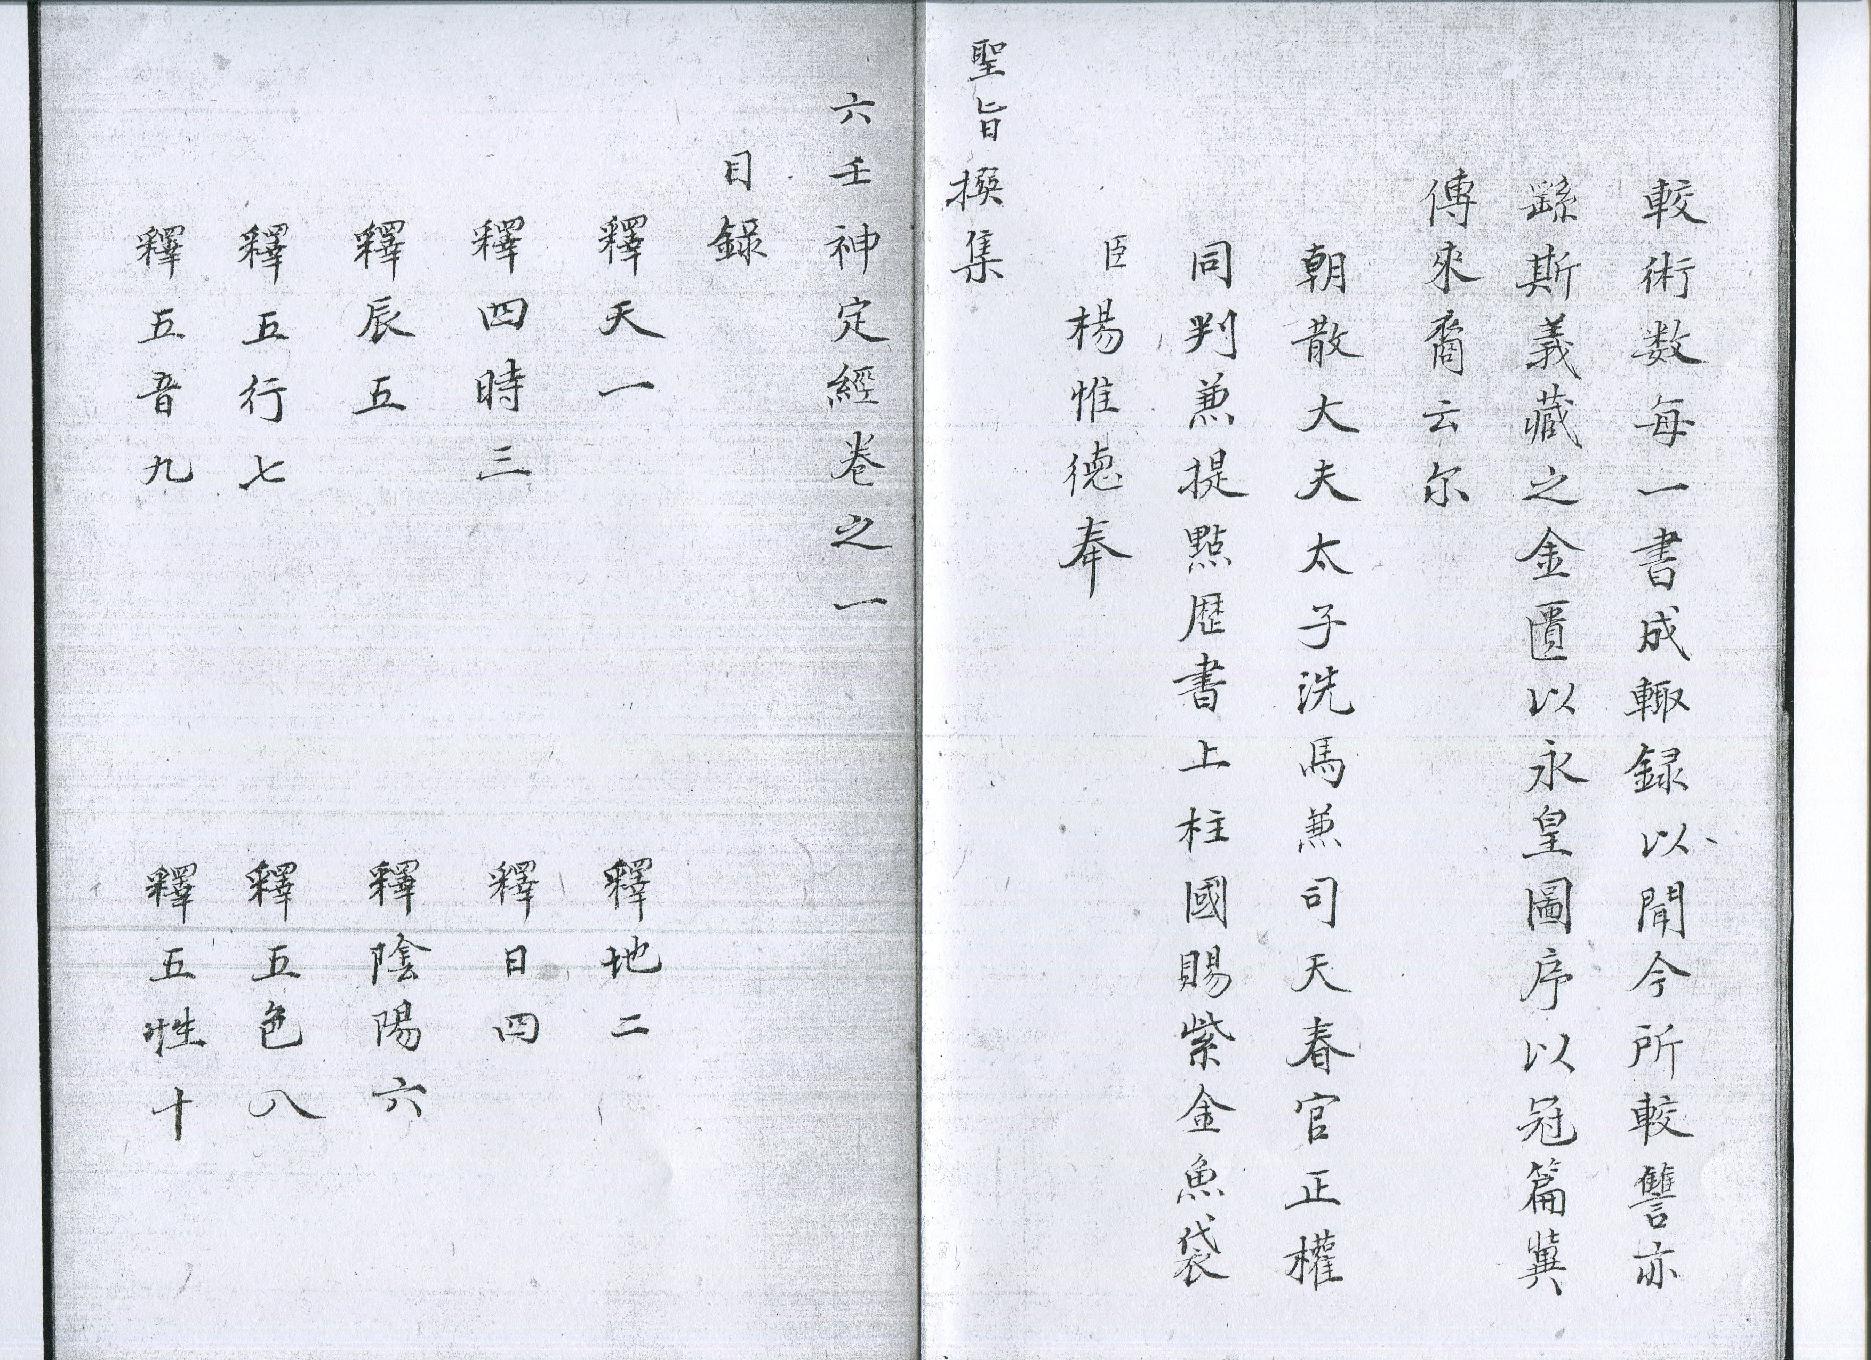 較術数每一書成輙録以聞今所較讐亦
繇斯義藏之金匱以永皇圖序以冠篇冀
傳來裔云尔
朝散大夫太子洗馬兼司天春官正權
同判兼提點歴書上柱國賜紫金魚袋
臣楊惟德奉
聖旨撰集
六壬神定經卷之一
目録
釋天一 釋地二
釋四時三 釋日四
釋辰五 釋陰陽六
釋五行七 釋五色八
釋五音九 釋五性十